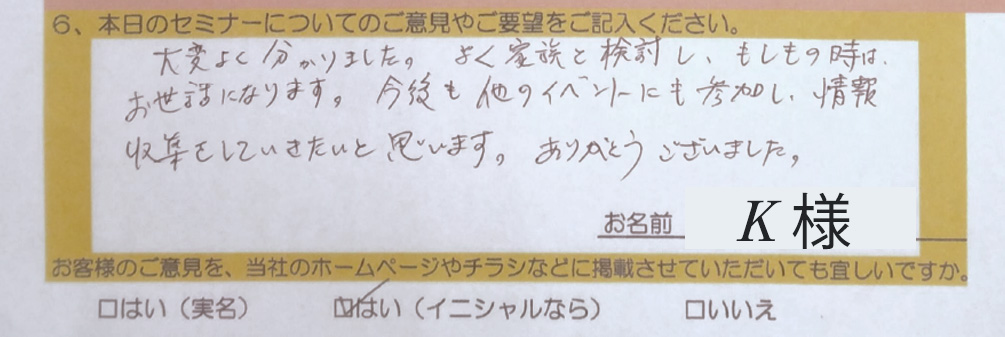 6、本日のセミナーについてのご意見やご要望をご記入ください。
大変よく分かりました。よく家族と検討し、もしもの時は、
お世話になります。今後も他のイベントにも参加し、情報
収集をしていきたいと思います。ありがとうございました。
お名前 K 様
お客様のご意見を、当社のホームページやチラシなどに掲載させていただいても宜しいですか。
□はい（実名） ☑はい（イニシャルなら） □いいえ